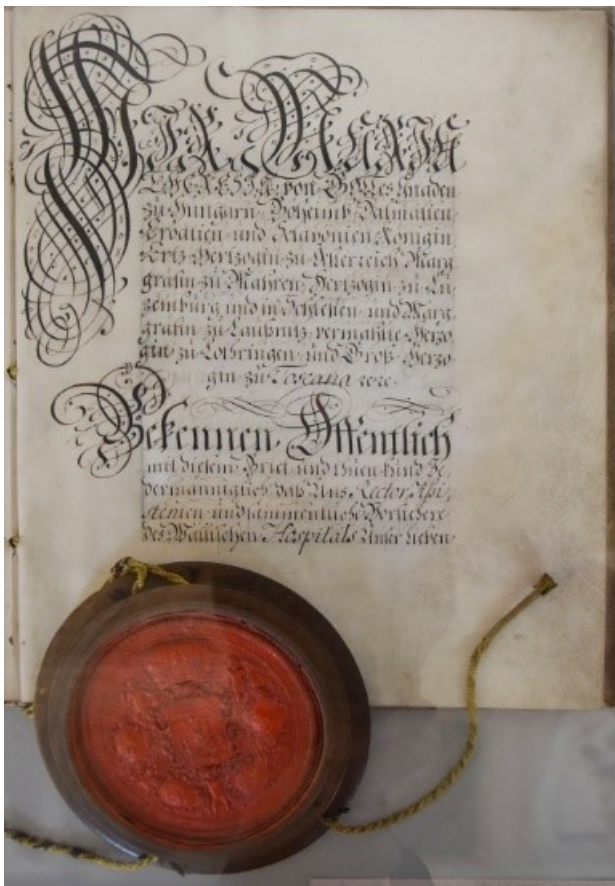 Wir Maria
Theresia von Gottes Gnaden
zu Hungarn Boheimb Dalmatien
Croatien und Sclavonien Königin
Ertz Hertzogin zu Osterreich Marg
gräfin zu Mähren Hertzogin zu Lu
xemburg und in Schlesien und Marg
gräfin zu Laußnitz vermählte Herzo
gin zu Lothringen und Groß Herzo
gin zu Toscana
Bekennen Öffentlich
mit diesem Brief und thuen kund Je
dermänniglich daß Uns Rector Assi
stenten und sammentliche Vorstehere
des Wällischen Hospitals Unser lieben